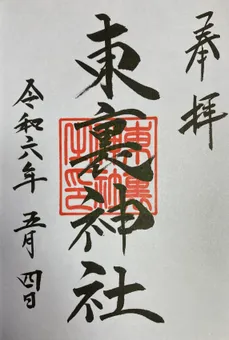 奉拝
東裏神社
東裏神社之印
令和六年五月四日